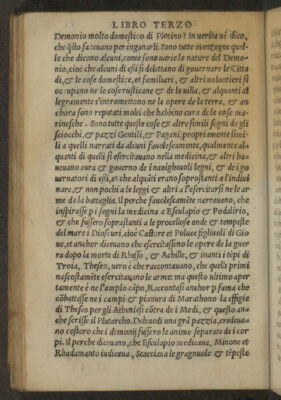 LIBRO TERZO
Demonio molto domestico di Plotino? In uerita ui dico,
che q̃sto faceuano per ingannarli. Sono tutte menzogne quel-
le che dicono alcuni, come sono uarie le nature del Demo-
nio, cioè che alcuni di essi si delettano di gouernare le Citta
di, & le cose domestice, et familiari, & altri uolontieri si
occupano ne le cose rusticane & de la uilla, & alquanti al
legramente s'intromettono ne le opere de la terra, & an
chora sono reputati molti che habbino cura de le cose ma
rinesche. Sono tutte queste cose & altre simili sogni de gli
sciocchi, & pazzi Gentili, & Pagani, propriamente simi-
li a quelli narrati da alcuni fauolescamente, qualmente al-
quanti di quelli si esercitauano nella medicina, & altri ha-
ueuano cura & gouerno de i nauighevoli legni, & de i go
uernatori di essi, et che alquãti erano soprastanti a l'indiui
nare, & non pochi a le leggi & altri a l'esercitarsi ne le ar
me de la battaglia. Il perche fauolescamente narrauano, che
inspirasse pi sogni la medicina a Esculapio & Podalirio,
& che fussero soprastanti a le procellose onde & tempeste
del mare i Dioscuri, cioè Castore et Poluce figliuoli di Gio
ue, et anchor diceuano che esercitassero le opere de la guer
ra dopo la morte di Rhesso, & Achille, & inanti i tẽpi di
Troia, Theseo, uero è che raccontauano, che quelli primi
nascostamẽte esercitauano le arme ma questo ultimo aper
tamente è ne l'amplo cãpo, Raccontasi anchor p fama che
cõbattesse ne i campi & pianura di Marathono la effigie
di Theseo per gli Atheniesi cõtra de i Medi, & questo an-
che scrisse il Plutarcho. Deh uedi una grã pazzia, credeua
no costoro che i demonij fussero le anime separate de i cor
pi. Il perche diceuano, che Esculapio medicaua, Minone et
Rhadamanto iudicaua, Scacciaua le gragnuole & tẽpiste